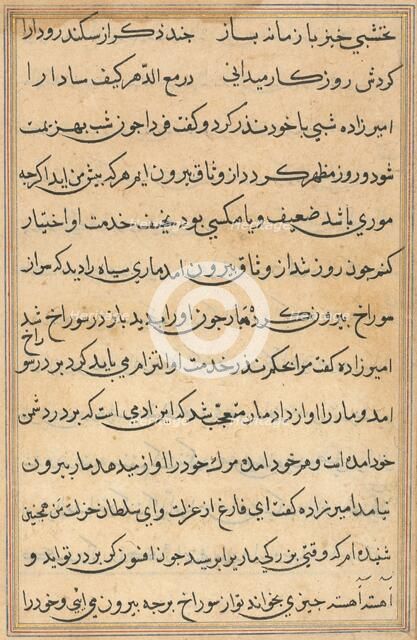 نخشبی خیز با زمانه بساز جند ذکر از سکندر و دارا
کردش روز کار میدانی در مع الدهر کیف ما دارا
امیرزاده شبی با خود نذر کرد و کفت فردا جون شب بهزیمت
شود و روز مظهر کردد از وثاق بیرون ایم هر که بیش من اید اکرجه
موری باشد ضعیف و یا مکسی بود نحیف خدمت او اختیار
کنم جون روز شد از وثاق بیرون امد ماری سیاه را دید که سر از
سوراخ بیرون کرد مار جون او را بدید باز در سوراخ شد
امیرزاده کفت مرا بحکم نذر خدمت او التزام می باید کرد بر در سوراخ
امد و مار را اواز داد مار متعجب شد که این ادمی است که بر در دشمن
خود امده است و هر خود امده مرک خود را اواز میدهد مار بیرون
نیامد امیرزاده کفت ای فارغ از عزلت و ای سلطان عزلت من همجنین
شنیده ام که وقتی بزرکی مار برابر رسید جون افسون کر بر در تو اید و
آهسته آهسته جیزی بخواند تو از سوراخ برجه بیرون می ایی و خود را
Heritage